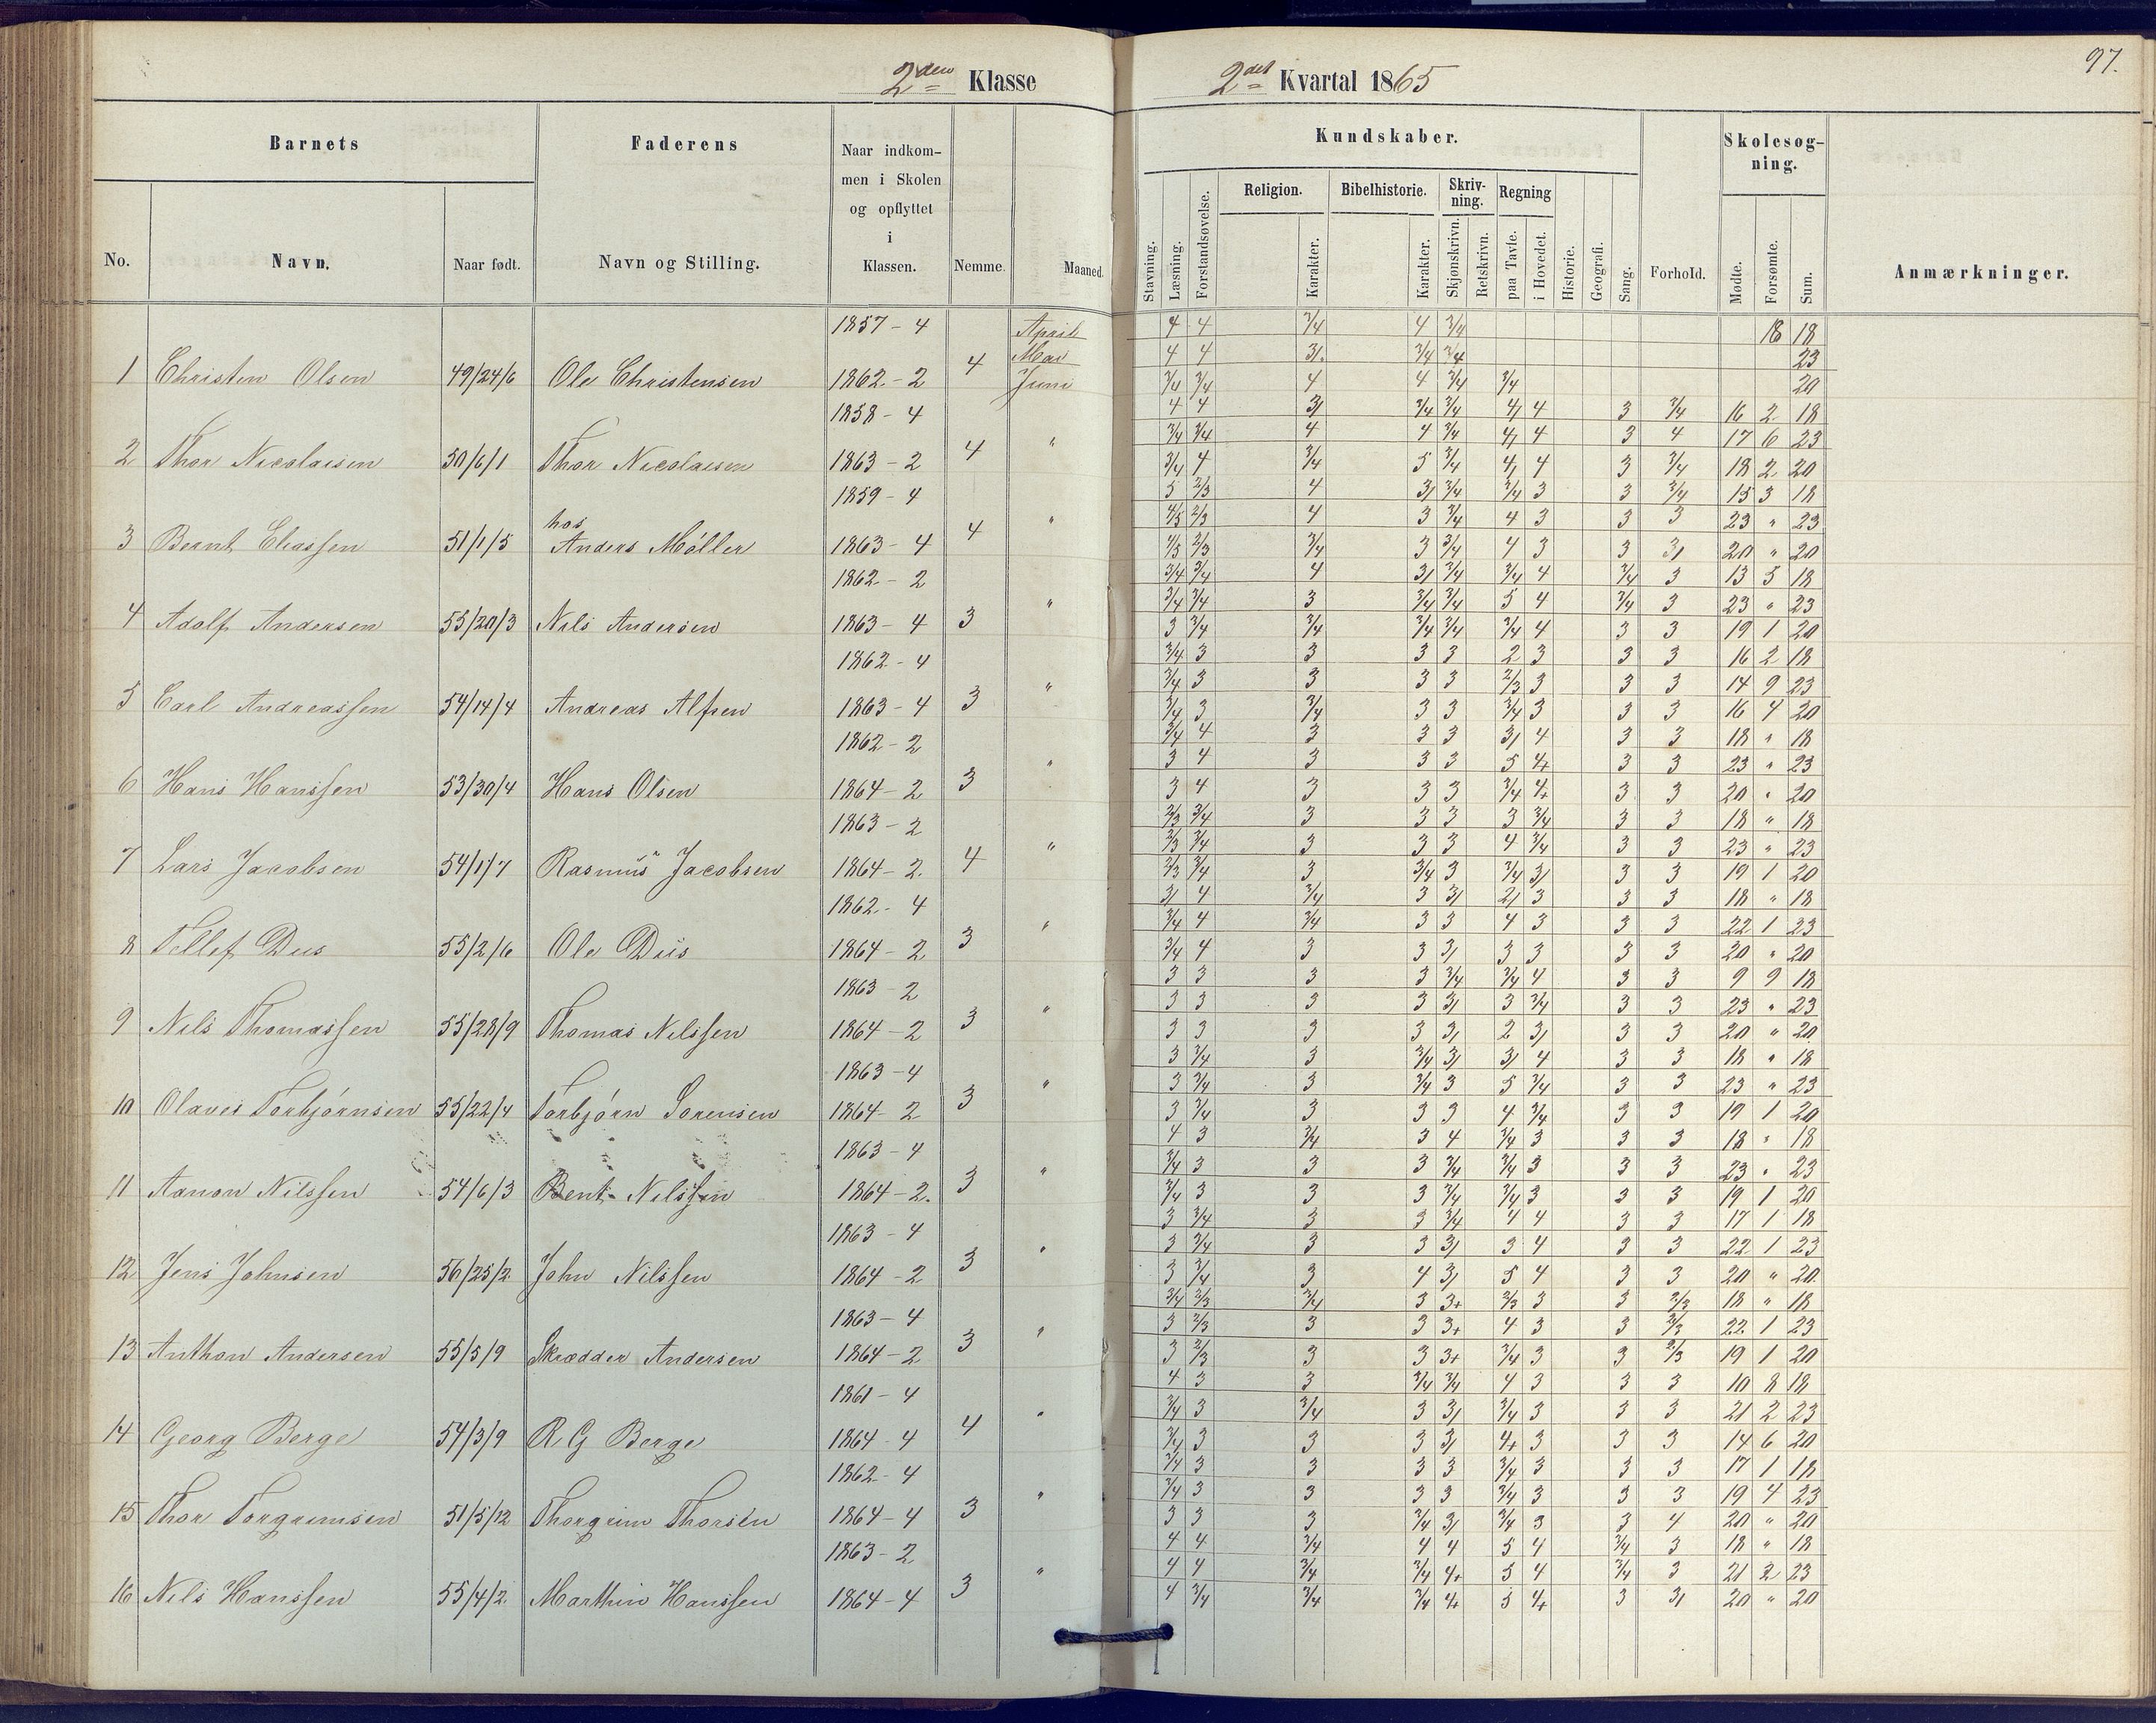 97.
2den Klasse 2det Kvartal 1865
Barnets Faderens Naar indkom-
men i Skolen
og opflyttet
i
Klassen. Nemme. Maaned. Kundskaber. Forhold. Skolesøg-
ning. Anmærkninger.
No. Navn. Naar født. Navn og Stilling.
Religion. Bibelhistorie. Skriv-
ning. Regning
Stavning. Læsning. Forstandsøvelse. Karakter. Karakter. Skjønskrivn. Retskrivn. paa Tavle. i Hovedet. Historie. Geografi. Sang. Mødte. Forsømte. Sum.
1857 - 4 April 4 4 3/4 4 3/4 18 18
Mai 4 4 3/ 3/4 3/4 23
1 Christen Olsen 49/24/6 Ole Christensen 1862 - 2 4 Juni 3/4 3/4 4 4 3/4 3/4 20
1858 - 4 4 4 3/ 3/4 3/4 4/ 4 3 3/4 16 2 18
3/4 3/4 4 4 3/4 4/ 4 3 4 17 6 23
2 Thor Nicolaisen 50/6/1 Thor Nicolaisen 1863 - 2 4 " 3/4 4 3/4 5 3/4 4/ 4 3 3/4 18 2 20
1859 - 4 5 2/3 4 3/ 3/4 3/4 3 3 3/4 15 3 18
hos 4/5 2/3 4 3 3/4 4 3 3 3 23 " 23
3 Bernt Eliassen 51/1/5 Anders Møller 1863 - 4 4 " 4/5 2/3 3/4 3 3/4 4 3 3 3/ 20 " 20
1862 - 2 3/4 3/4 4 3/ 3/4 3/4 4 3/4 3 13 5 18
3/4 3/4 3 3/4 3/4 5 4 3/4 3 23 " 23
4 Adolf Andersen 55/20/3 Nils Andersen 1863 - 4 3 " 3 3/4 3/4 3/4 3/4 3/4 4 3 3 19 1 20
1862 - 4 3/4 3 3 3 3 2 3 3 3 16 2 18
3/4 3 3 3 3 2/3 3 3 3 14 9 23
5 Carl Andreassen 54/14/4 Andreas Alfsen 1863 - 4 3 " 3/4 3 3/4 3 3 3/4 3 3 3 16 4 20
1862 - 2 3/4 4 3 3 3 3/ 4 3 3 18 " 18
3 4 3 3 3 5 4+ 3 3 23 " 23
6 Hans Hanssen 53/30/4 Hans Olsen 1864 - 2 3 " 3 4 3 3 3 3/4 4+ 3 3 20 " 20
1863 - 2 2/3 3/4 3 3 3 3 3/4 3 3 18 " 18
2/3 3/4 3 3 3 4 3/4 3 3 23 " 23
7 Lars Jacobsen 54/1/7 Rasmus Jacobsen 1864 - 2. 4 " 2/3 3/4 3 3/4 3 3/4 3/ 3 3 19 1 20
1862 - 4 3/ 4 3/4 3 3/ 2/ 3 3 3 18 " 18
3/4 4 3/4 3 3 4 3 3 3 22 1 23
8 Tellef Dus 55/2/6 Ole Dus 1864 - 2 3 " 3/4 4 3 3 3/ 3 3 3 3 20 " 20
1863 - 2 3 3 3 3 3/4 3/4 4 3 3 9 9 18
3 3 3 3 3/ 3 3/4 3 3 23 " 23
9 Nils Thomassen 55/28/9 Thomas Nilssen 1864 - 2 3 " 3 3 3 3 3/ 2 3/ 3 3 20 " 20
1863 - 4 3 3/4 3 3/4 3/ 3/ 4 3 3 18 " 18
3 3/4 3 3/4 3 5 3/4 3 3 23 " 23
10 Olaves Torbjørnsen 55/22/4 Torbjørn Sørensen 1864 - 2 3 " 3 3/4 3 3 3 4 3/4 3 3 19 1 20
1863 - 4 4 3 3/4 3 4 3/4 3 3 3 18 " 18
3/4 3 3 3 3/4 3/4 3 3 3 23 " 23
11 Aanon Nilssen 54/6/3 Bent Nilssen 1864 - 2. 3 " 3/4 3 3 3 3/4 3/4 3 3 3 19 1 20
1863 - 4 3 3/4 3 3 3/4 4 4 3 3 17 1 18
3 3/4 3 3 3/ 3 4 3 3 22 1 23
12 Jens Johnsen 56/25/2 John Nilssen 1864 - 2 3 " 3 3/4 3 4 3/ 5 4 3 3 20 " 20
1863 - 4 3/4 2/3 3/4 3 3+ 2/3 3 3 2/3 18 " 18
3 2/3 3 3 3+ 4 3 3 2/3 22 1 23
13 Anthon Andersen 55/5/9 Skrædder Andersen 1864 - 2 3 " 3 2/3 3 3 3+ 3/4 3 3 2/3 19 1 20
1861 - 4 4 3 3 3/4 3/4 4 3 3 3 10 8 18
3/4 3 3/4 3 3/ 3/4 3 3 3 21 2 23
14 Georg Berge 54/3/9 R G Berge 1864 - 4 4 " 3/4 3 3 3 3/ 4+ 3 3 3 14 6 20
1862 - 4 3/4 3 3 3 3 3/4 3 3 3 17 1 18
3/4 3 3 3 3 3/4 3 3 3 19 4 23
15 Thor Torgrimsen 51/5/12 Thorgrim Thorsen 1864 - 4 3 " 3 3 3 3/4 3/ 3/4 3 3 4 20 " 20
1863 - 2 4 4 3/4 4 4 5 4 3/4 3 18 " 18
4 4 3/4 3/4 4+ 5 4 3/4 3 21 2 23
16 Nils Hanssen 55/4/2. Marthin Hanssen 1864 - 4 3 " 4 3/4 3/4 3/4 4+ 5 4+ 3 3/ 20 " 20